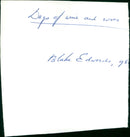 Days of wine and roses
Blake Edwards, 1962